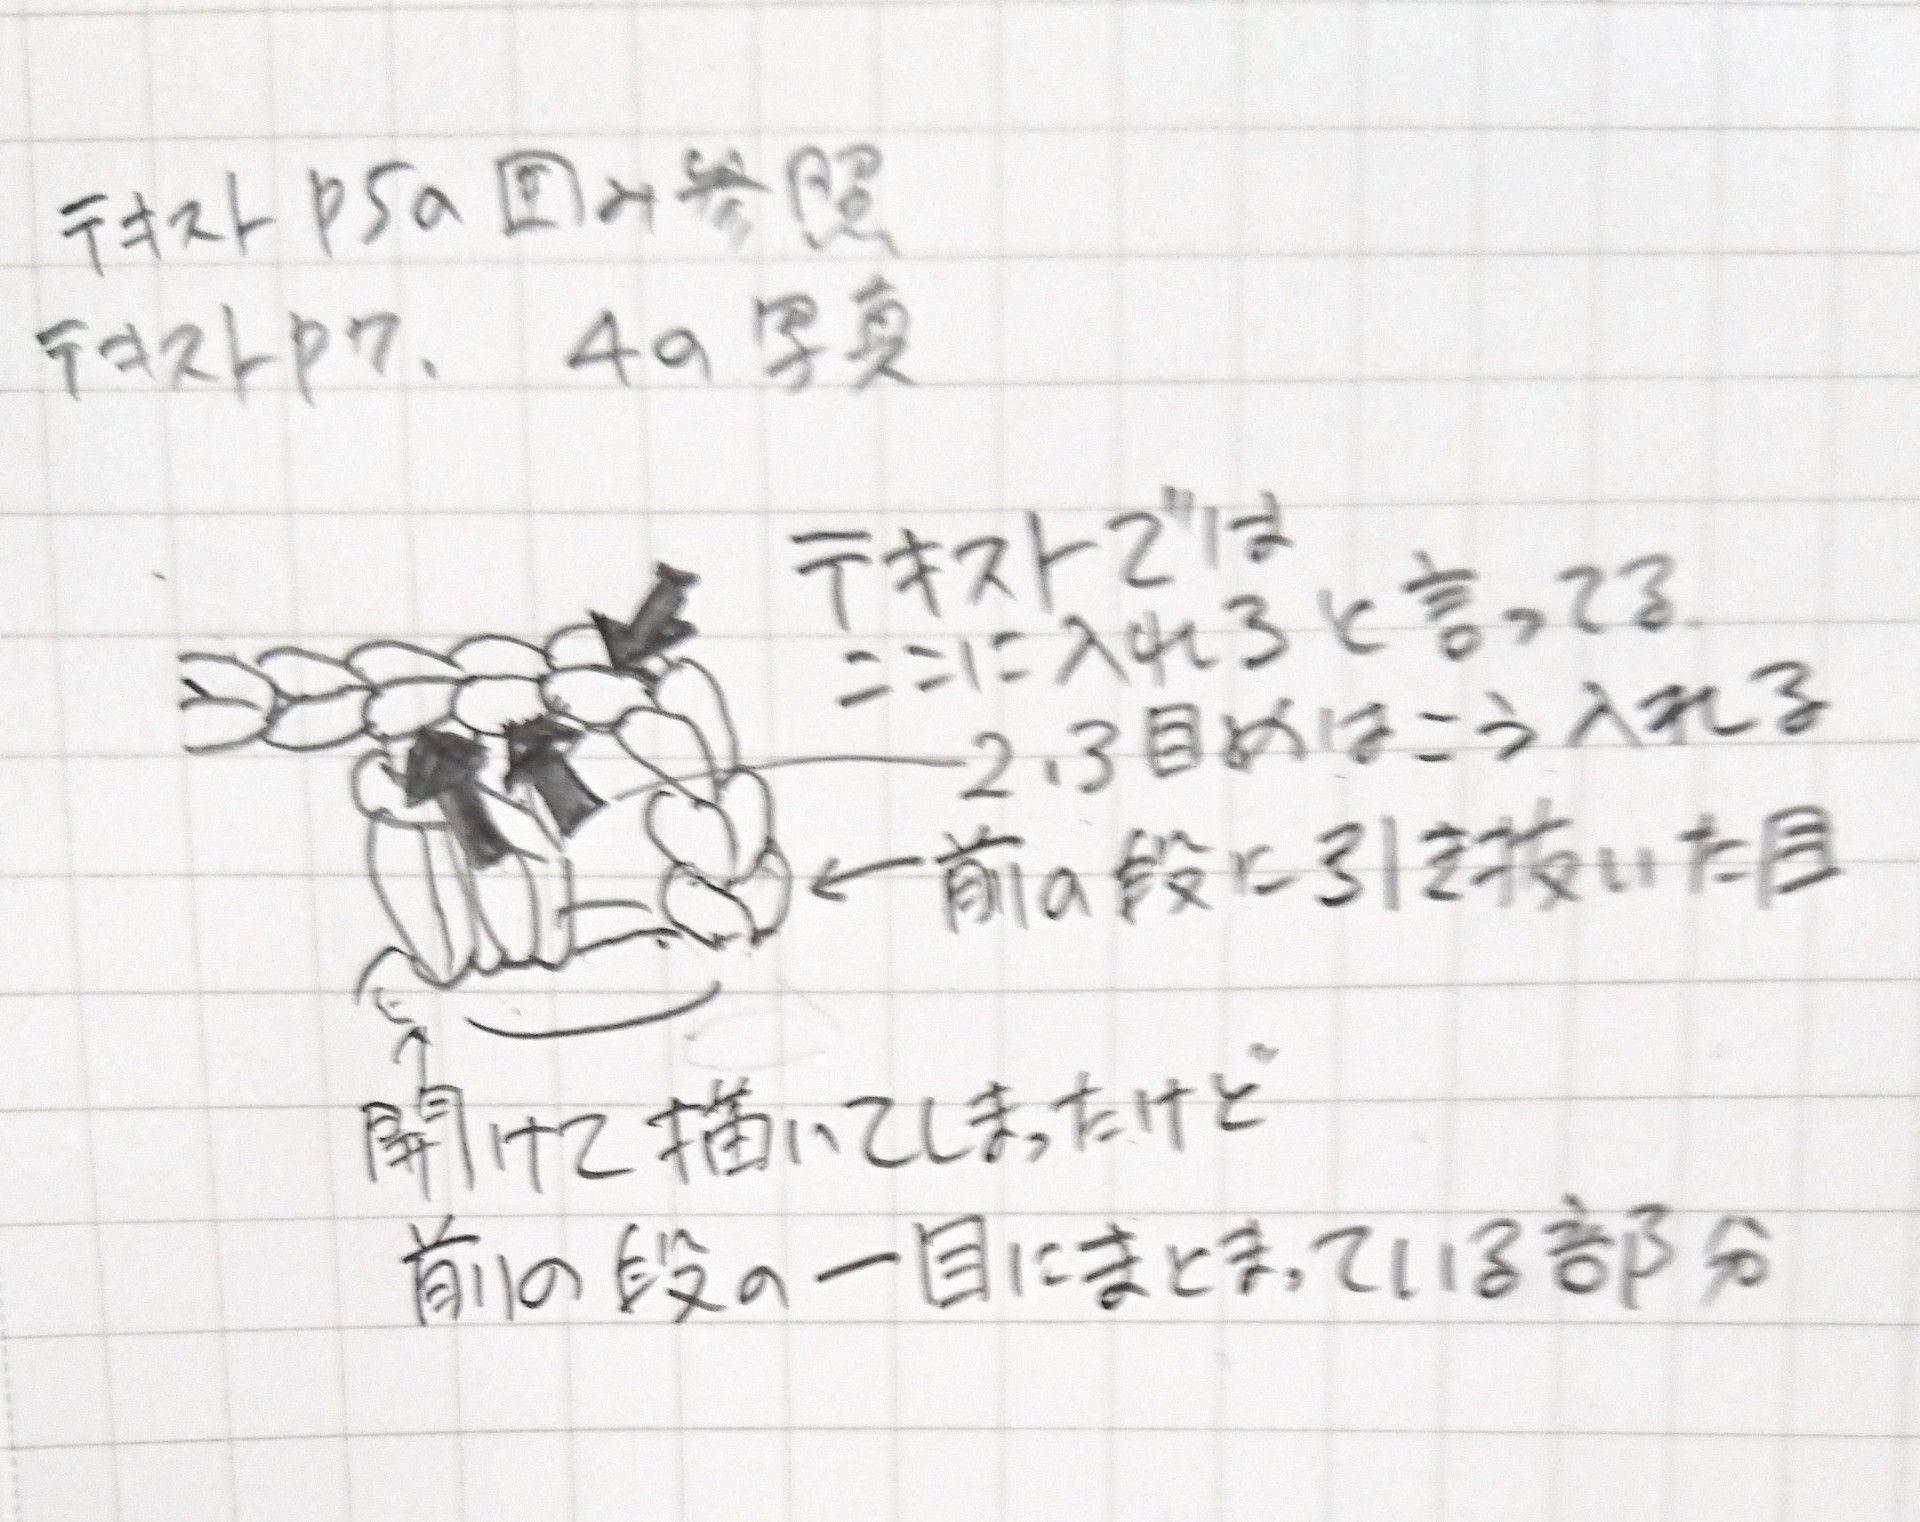 テキストp5の図み参照
テキストp7. 4の写真
テキストでは
ここに入れろと言ってる
2.3目めはこう入れる
前の段に引き抜いた目
開けて描いてしまったけど
前の段の一目にまとまっている部分